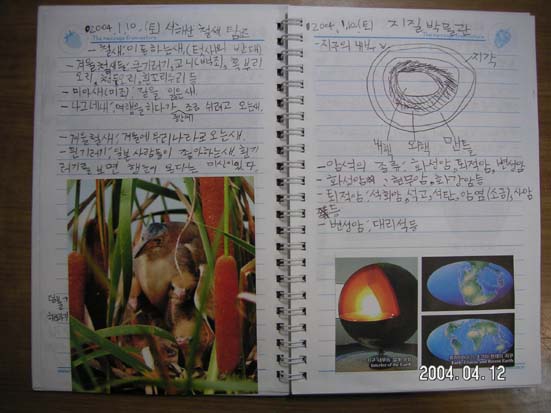 2004. 1. 10. (토) 서해안 철새 탐조
- 철새: 이동하는 새, (텃새의 반대)
- 겨울철새들: 큰기러기, 고니(백조), 흑부리
오리, 청둥오리, 흰꼬리수리 등
- 미아새(미조) 길을 잃은 새
- 나그네새: 여행을 하다가 조금 쉬려고 오는새.
- 겨울철새: 겨울에 우리나라로 오는새.
- 흰기러기: 일본 사람들이 좋아하는새, 흰기
러기를 보면 행운이 온다는 미신이 있다.
덤불
2004. 1. 10 (토) 지질박물관
- 지구의 내부
지각
내핵 외핵 맨틀
- 암석의 종류: 화성암, 퇴적암, 변성암
- 화성암: 현무암, 화강암등
- 퇴적암: 석회암, 석고, 석탄, 암염(소금), 사암
등
- 변성암: 대리석등
Interior of the Earth
2004.04.12